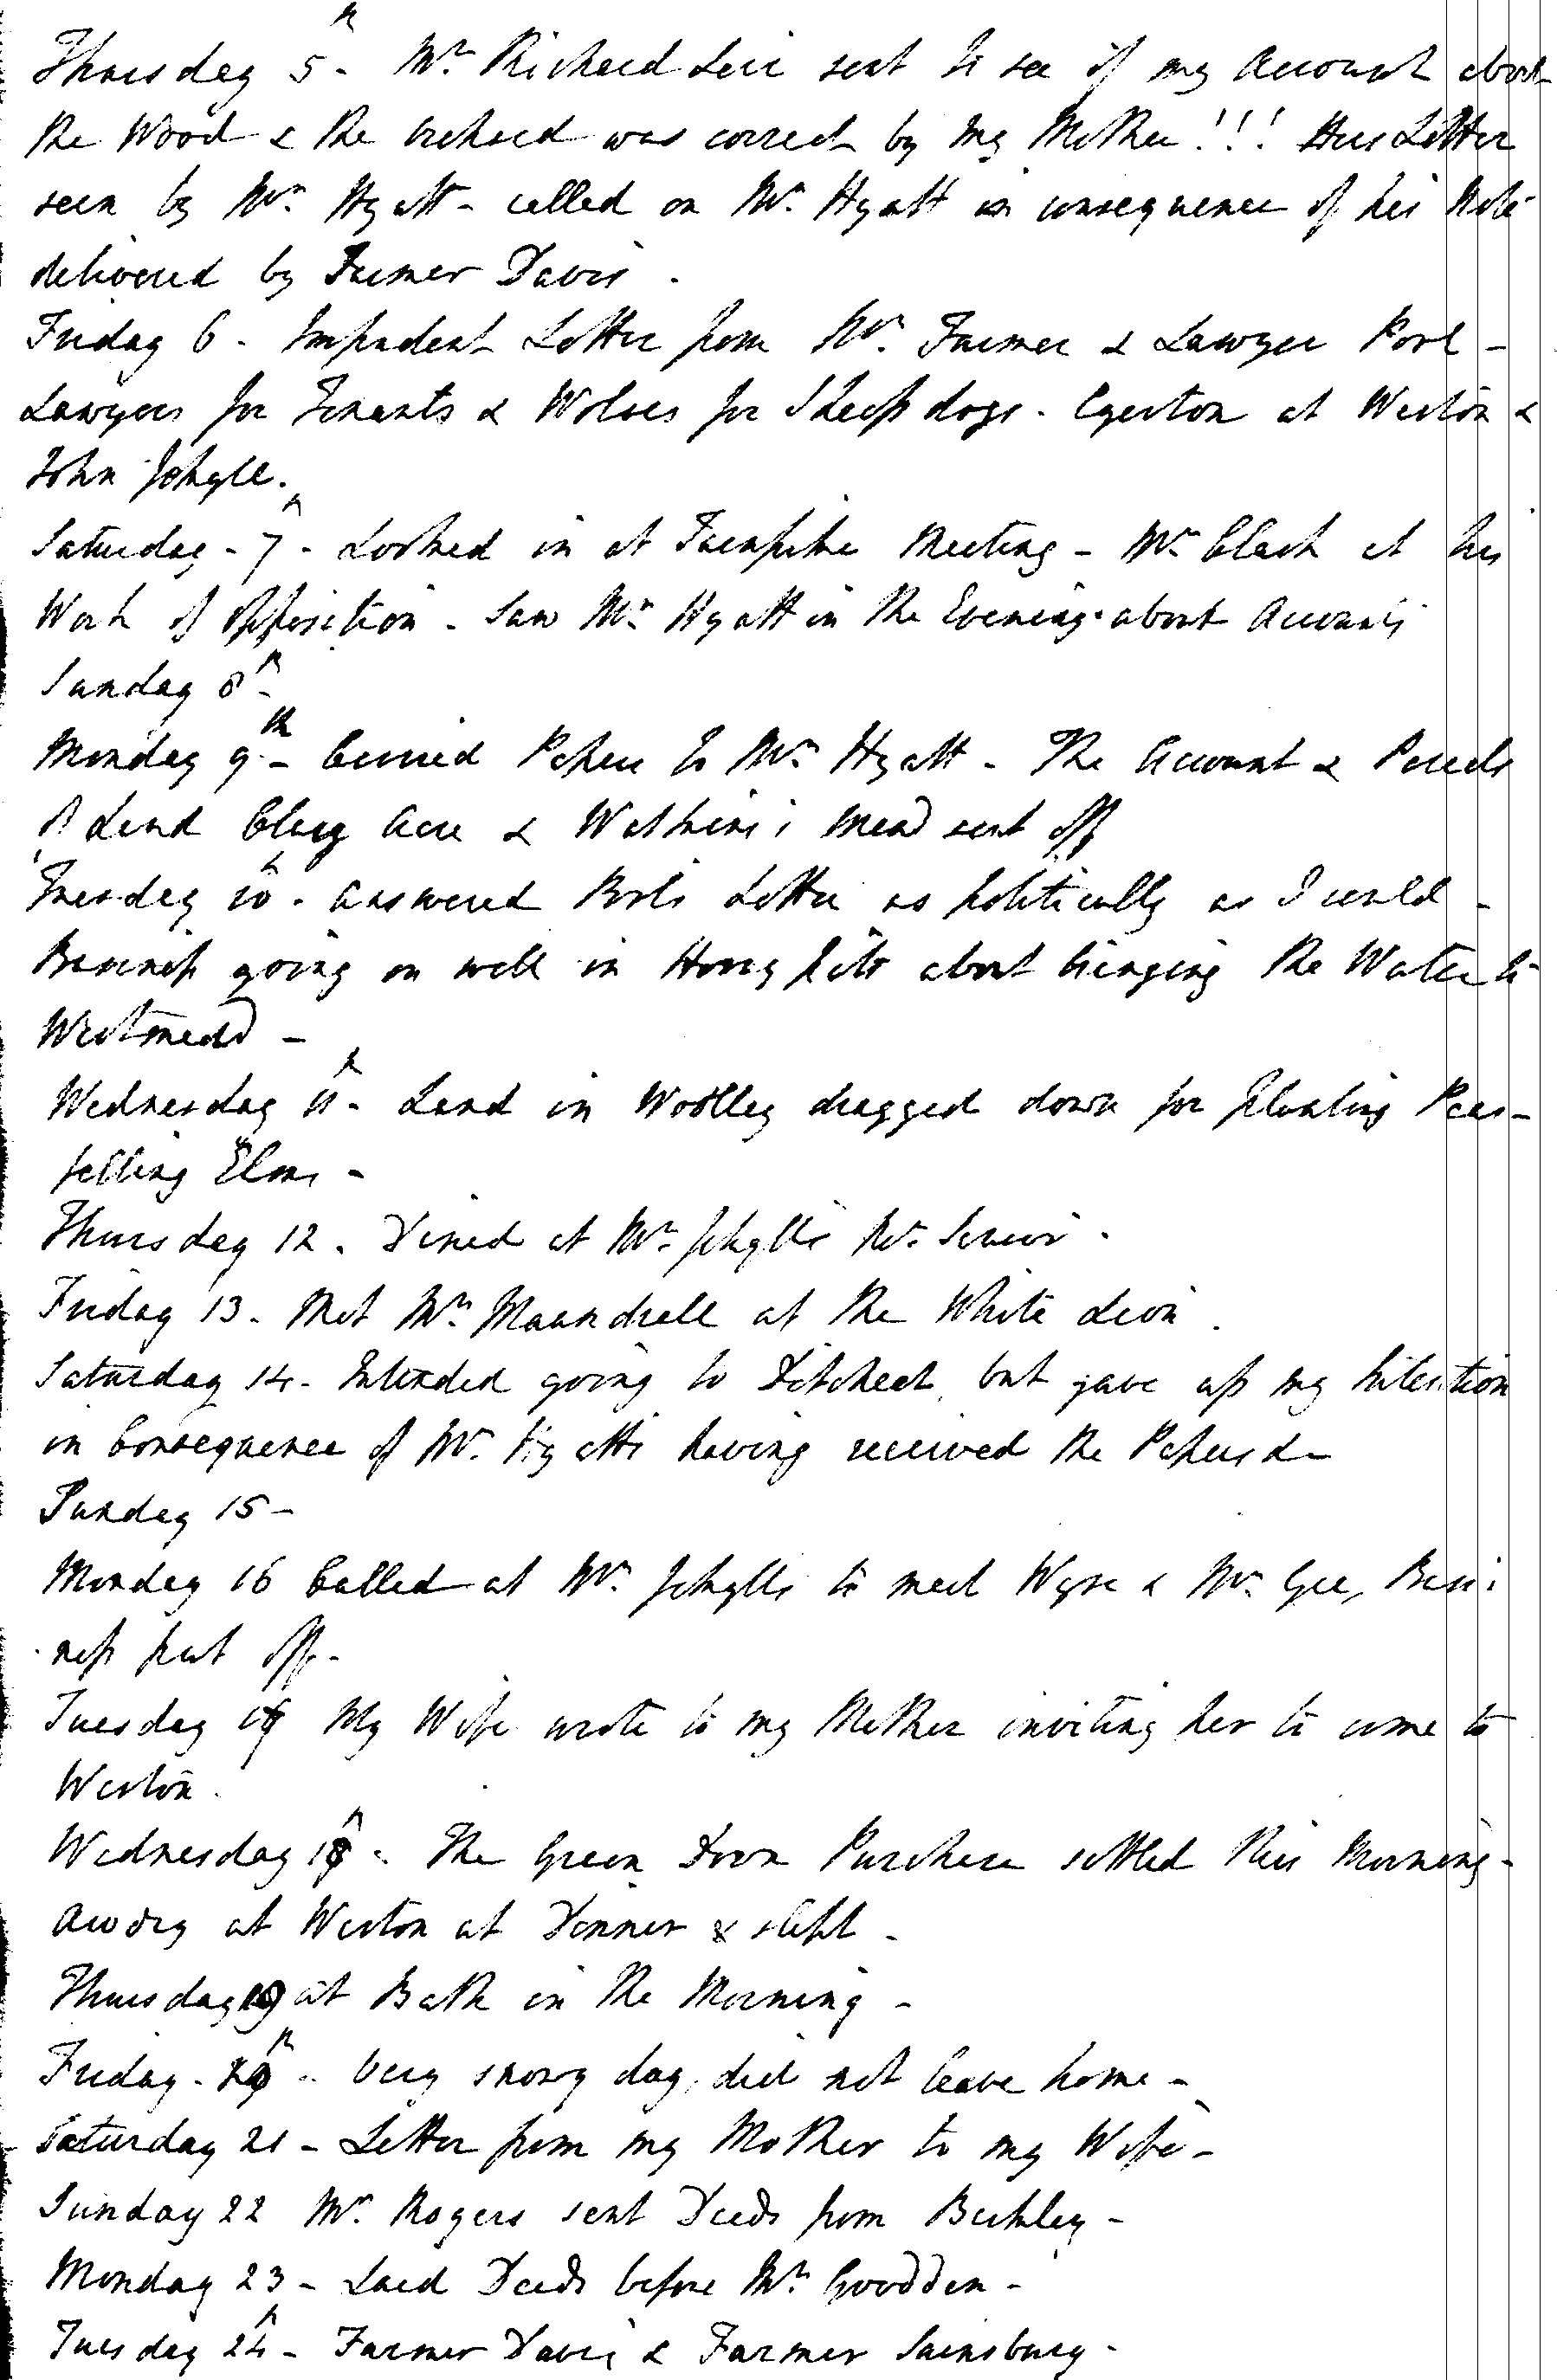 Thursday 5th - Mr. Richard Leir sent to see if my Account about
the Wood & the Orchard was correct by my Mother!!! Her Letter
seen by Mr. Hyatt - called on Mr. Hyatt in consequence of his Note
delivered by Farmer Davis.
Friday 6 - Impudent Letter from Mr. Farmer & Lawyer Pool -
Lawyers for Tenants & Wolves for Sheep dogs - Egerton at Weston &
John Jekyll.
Saturday - 7th - Looked in at Turnpike Meeting - Mr. Clark at his
Work of Opposition - Saw Mr. Hyatt in the Evening about Accounts
Sunday 8th -
Monday 9th - Carried Papers to Mr. Hyatt - The Account & Parcels
of Land Clay Acre & Watkins's Mead sent off
Tuesday 10th - Answered Pool's Letter as politically as I could -
Business going on well in Honey pits about bringing the Water to
Westmead -
Wednesday 11th - Land in Woolley dragged down for planting Peas -
felling Elms -
Thursday 12 - Dined at Mr. Jekylls Mr.
Friday 13 - Met Mr. Maundrell at the White Lion.
Saturday 14 - Intended going to Ditcheat, but gave up my Intention
in Consequence of Mr. Hyatts having received the Papers &-
Sunday 15 -
Monday 16 Called at Mr. Jekylls to meet Wyse & Mr. Gee, Busi-
ness put off -
Tuesday 17 My Wife wrote to my Mother inviting her to come to
Weston.
Wednesday 18th - The Green Down Purchase settled this Morning -
Awdry at Weston at Dinner & slept -
Thursday 19 at Bath in the Morning -
Friday - 20th - Very snowy day, did not leave home -
Saturday 21 - Letter from my Mother to my Wife -
Sunday 22 Mr. Rogers sent Deeds from Berkley -
Monday 23 - Laid Deeds before Mr. Goodden -
Tuesday 24th - Farmer Davis & Farmer Sainsbury -